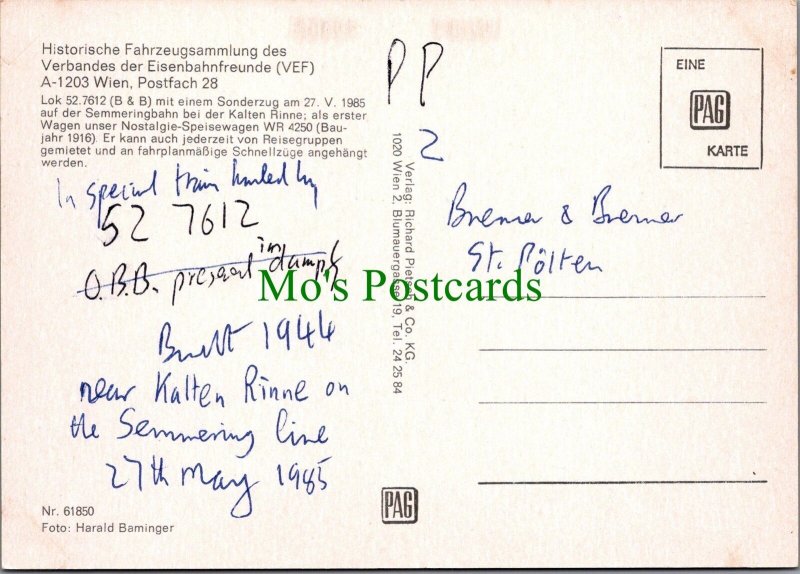 Historische Fahrzeugsammlung des
Verbandes der Eisenbahnfreunde (VEF)
A-1203 Wien, Postfach 28
Lok 52.7612 (B & B) mit einem Sonderzug am 27. V. 1985
auf der Semmeringbahn bei der Kalten Rinne; als erster
Wagen unser Nostalgie-Speisewagen WR 4250 (Bau-
jahr 1916). Er kann auch jederzeit von Reisegruppen
gemietet und an fahrplanmäßige Schnellzüge angehängt
werden.
In special train hauled by
52 7612
O.B.B. present in dampf
Built 1944
near Kalten Rinne on
the Semmering line
27th May 1985
Nr. 61850
Foto: Harald Baminger
PP
2
Verlag: Richard Pietsch & Co. KG.
1020 Wien 2, Blumauergasse 19, Tel. 24 25 84
PAG
EINE
PAG
KARTE
Bremer & Bremer
St. Pölten
Mo's Postcards